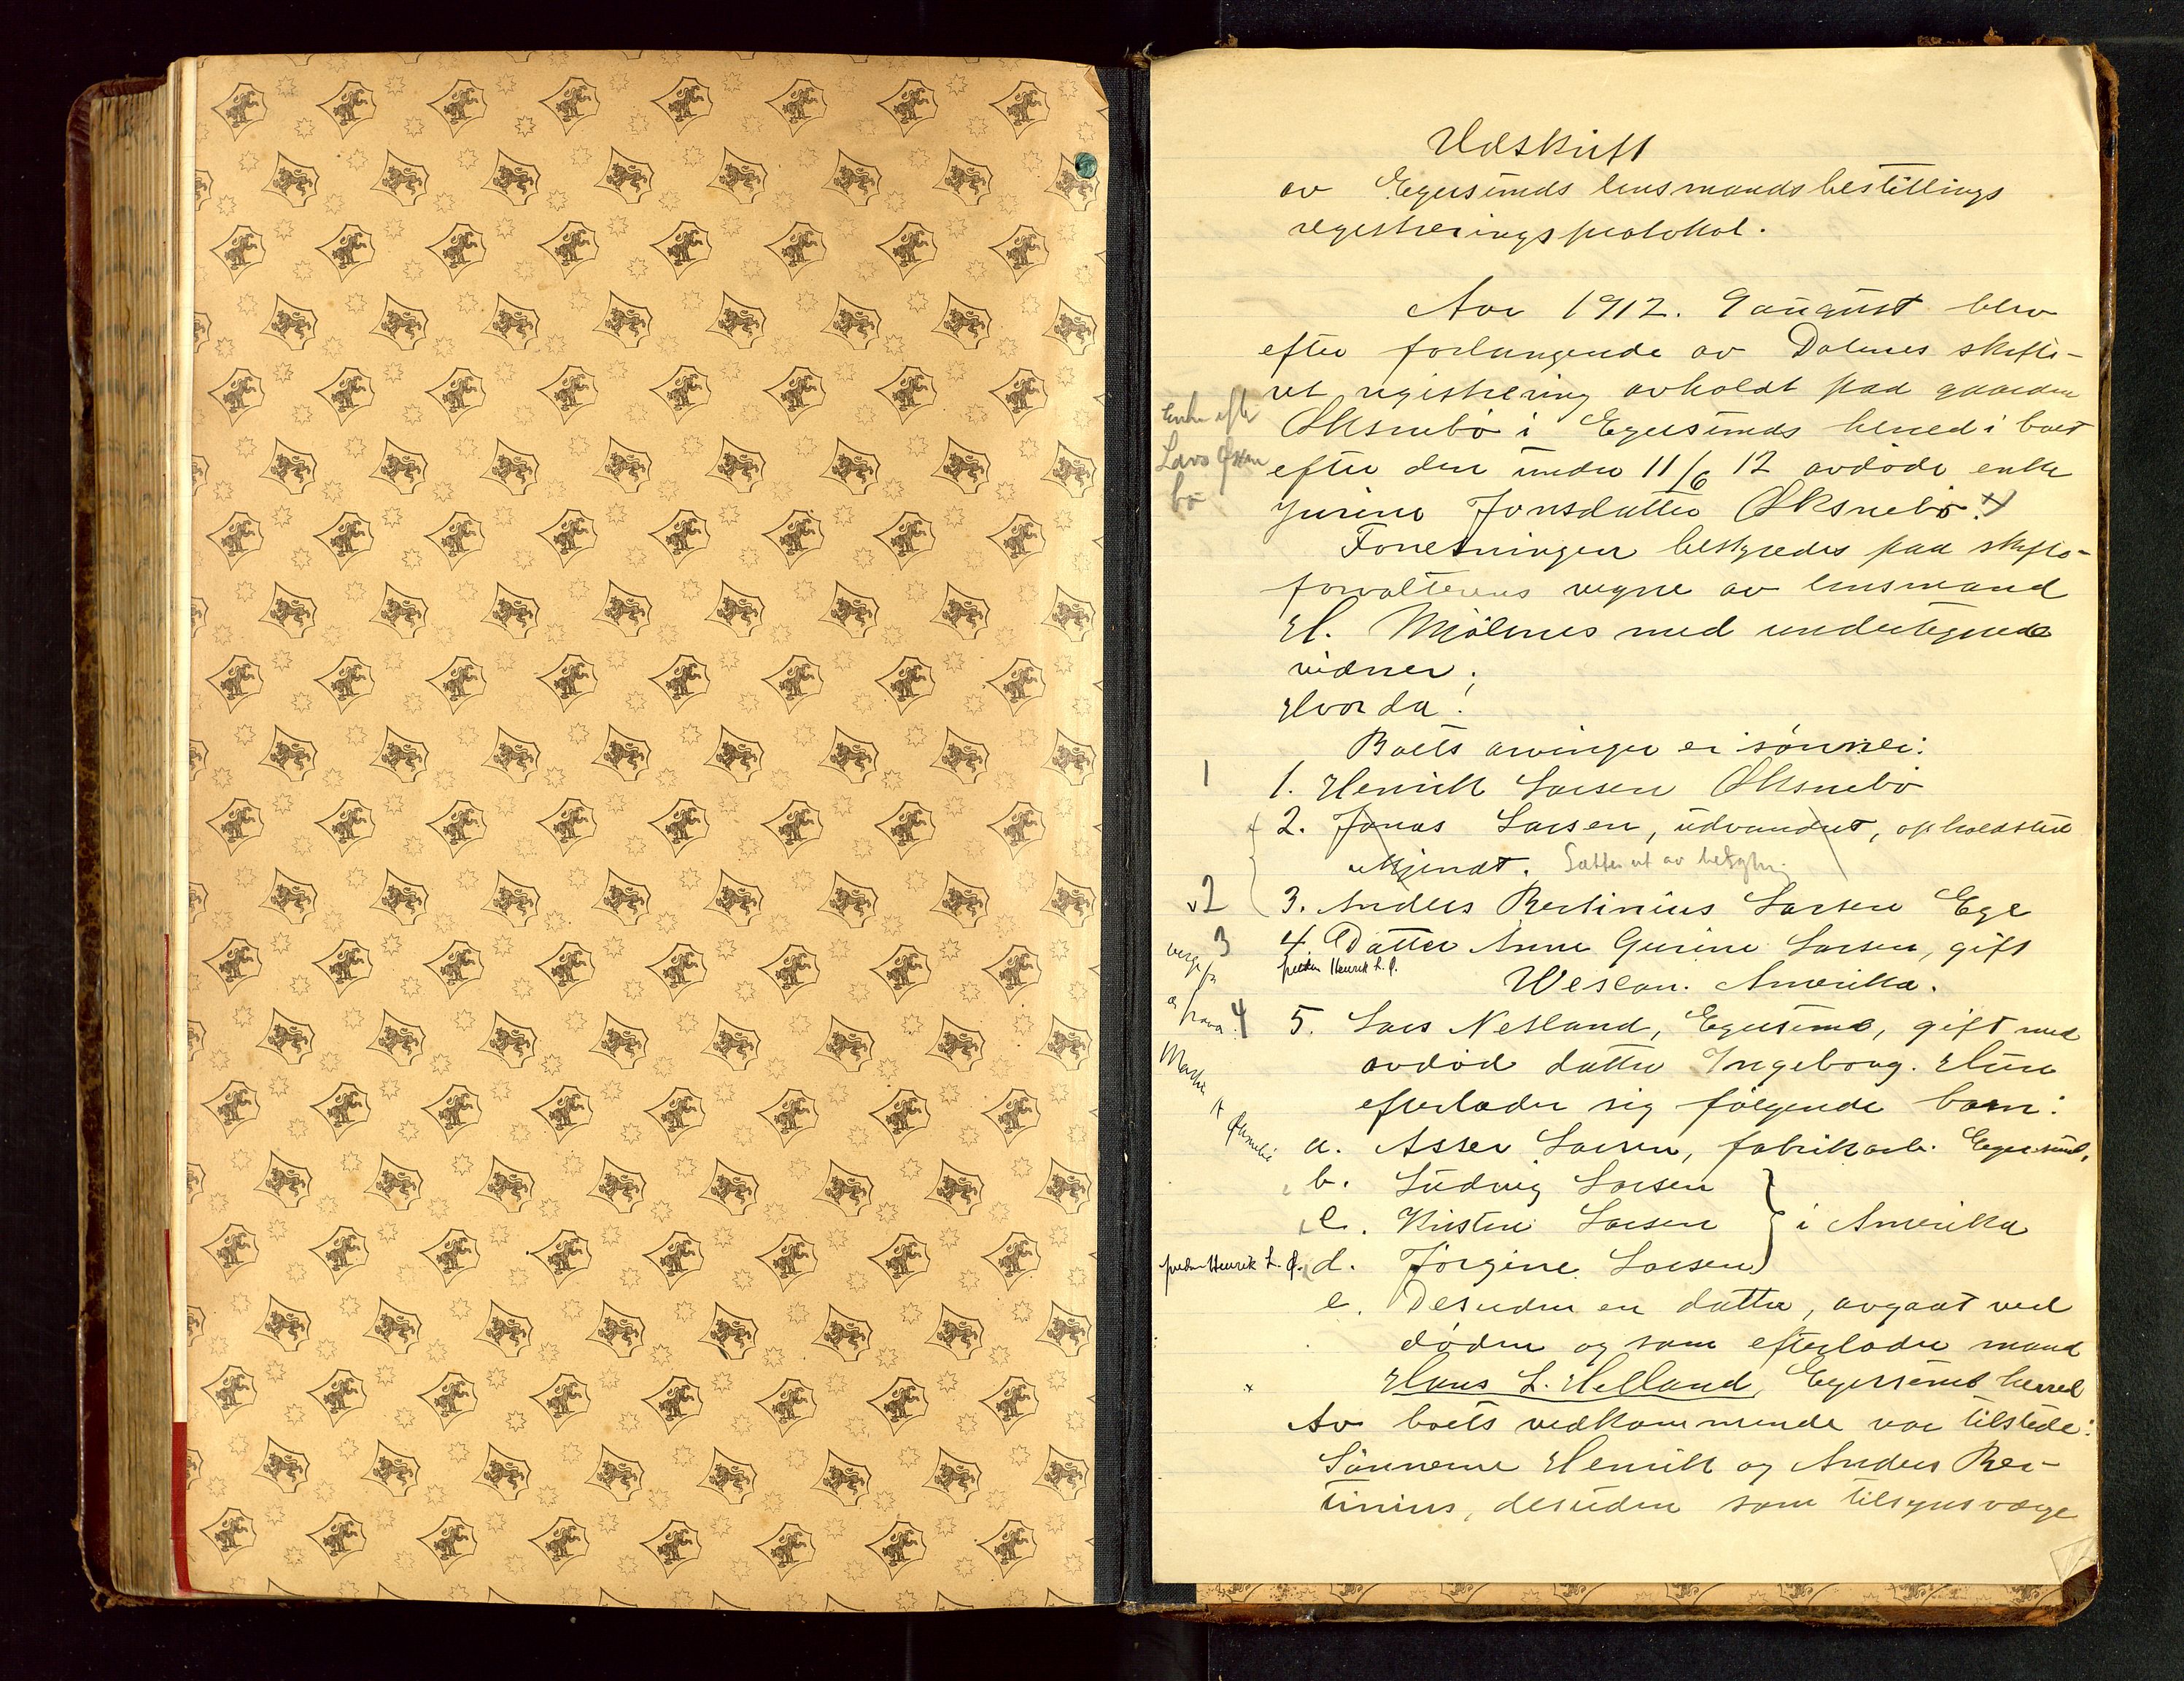 Udskrift
av Egersunds lensmandsbestillings
registreringsprotokol.
Aar 1912. 9 august blev
efter forlangende av Dalenes skifte-
ret registrering avholdt paa gaarden
Øksnebø i Egersunds herred i boet
efter den under 11/6 12 avdøde enke
Gurine Jonsdatter Øksnebø. x)
Enke efter
Lars Øksne
bø
Forretningen bestyredes paa skifte-
forvalterens vegne av lensmand
H. Mjølnes med undertegnede
vidner.
Hvorda!
Boets arvinger er sønner:
1 1. Henrik Larsen Øksnebø
2. Jonas Larsen, udvandret, opholdsted
ukjendt. Sættes ut av
2 3. Anders Bertinius Larsen Ege
3 4. Datter Anne Gurine Larsen, gift
Henrik L. Ø.
Weslan. Amerika.
4 5. Lars Netland, Egersund, gift med
avdød datter Ingeborg. Hun
efterlader sig følgende barn:
a. Asser Larsen, fabrikarb. Egersund,
b. Ludvig Larsen
c. Kristen Larsen } i Amerika
d. Jørgine Larsen
Henrik L. Ø.
e. Desuden en datter, avgaat ved
døden og som efterlader mand
x Hans L. Helland, Egersund herred
Av boets vedkommende var tilstede:
Sønnerne Henrik og Anders Ber-
tinius, desuden som tilsynsværge